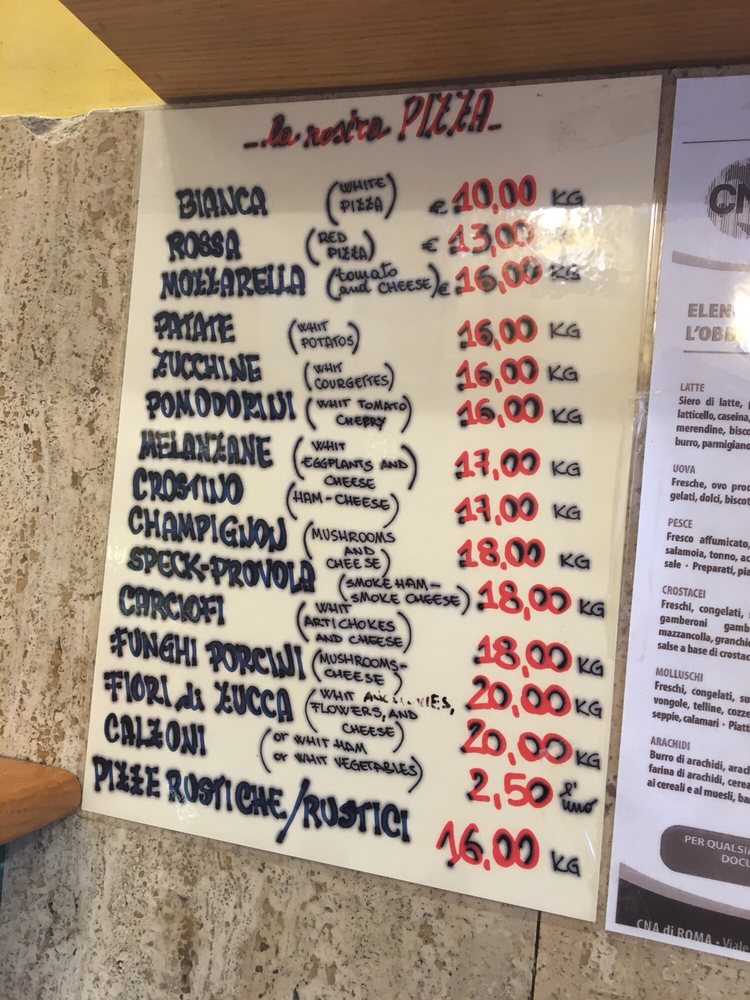 la nostra PIZZA
BIANCA (WHITE PIZZA) € 10,00 KG
ROSSA (RED PIZZA) € 13,00
MOZZARELLA (tomato and CHEESE) € 16,00 KG
PATATE (WHIT POTATOS) 16,00 KG
ZUCCHINE (WHIT COURGETTES) 16,00 KG
POMODORINI (WHIT TOMATO CHERRY) 16,00 KG
MELANZANE (WHIT EGGPLANTS AND CHEESE) 17,00 KG
CROSTINO (HAM-CHEESE) 17,00 KG
CHAMPIGNON (MUSHROOMS AND CHEESE) 18,00 KG
SPECK-PROVOLA (SMOKE HAM- SMOKE CHEESE) 18,00 KG
CARCIOFI (WHIT ARTICHOKES AND CHEESE) 18,00 KG
FUNGHI PORCINI (MUSHROOMS- CHEESE) 20,00 KG
FIORI di ZUCCA (WHIT FLOWERS, AND CHEESE) 20,00 KG
CALZONI (or WHIT HAM or WHIT VEGETABLES) 2,50 l'uno
PIZZE RUSTICHE/RUSTICI 16,00 KG
LATTE
Siero di latte,
latticello, caseina,
burro, parmigiano
UOVA
gelati, dolci,
PESCE
Fresco affumicato,
salamoia, tonno,
sale • Preparati,
CROSTACEI
Freschi, congelati,
gamberoni
mazzancolla,
salse a base di
MOLLUSCHI
Freschi, congelati,
vongole, telline,
seppie, calamari •
ARACHIDI
Burro di arachidi,
farina di arachidi,
ai cereali e al muesli,
PER
CNA di ROMA • Viale